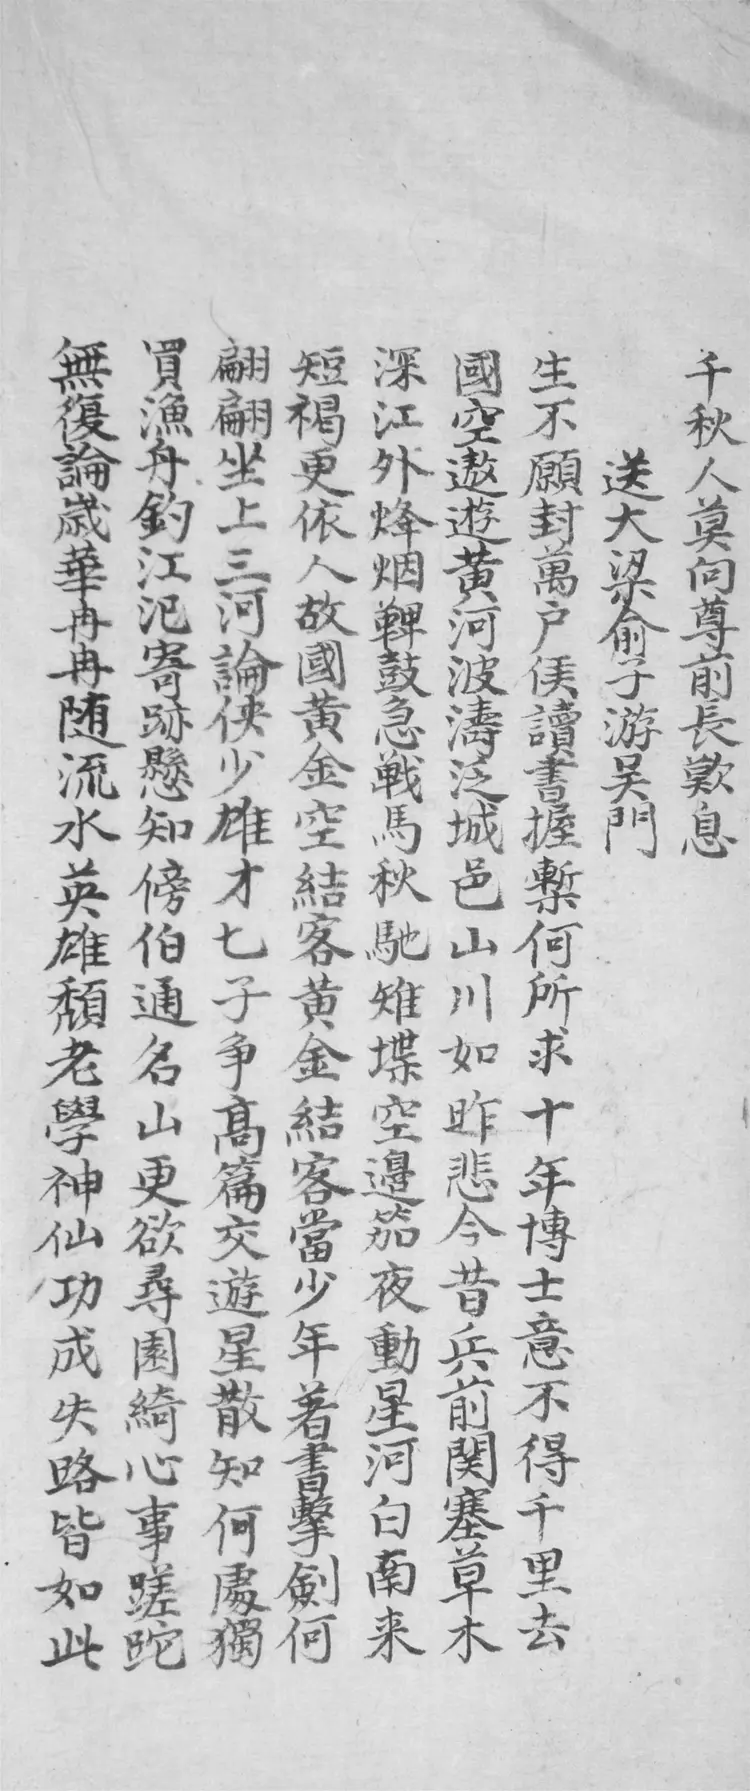 千秋人莫向尊前長歎息
送大梁俞子游吴門
生不願封萬户侯讀書握槧何所求十年博士意不得千里去
國空遨遊黄河波濤泛城邑山川如昨悲今昔兵前関塞草木
深江外烽烟鞞鼓急戦馬秋馳雉堞空邉笳夜動星河白南来
短褐更依人故國黄金空結客黄金結客當少年著書擊劍何
翩翩坐上三河論侠少雄才七子争髙篇交遊星散知何處獨
買漁舟釣江汜寄跡懸知傍伯通名山更欲尋園綺心事蹉跎
無復論歳華冉冉随流水英雄頽老學神仙功成失路皆如此